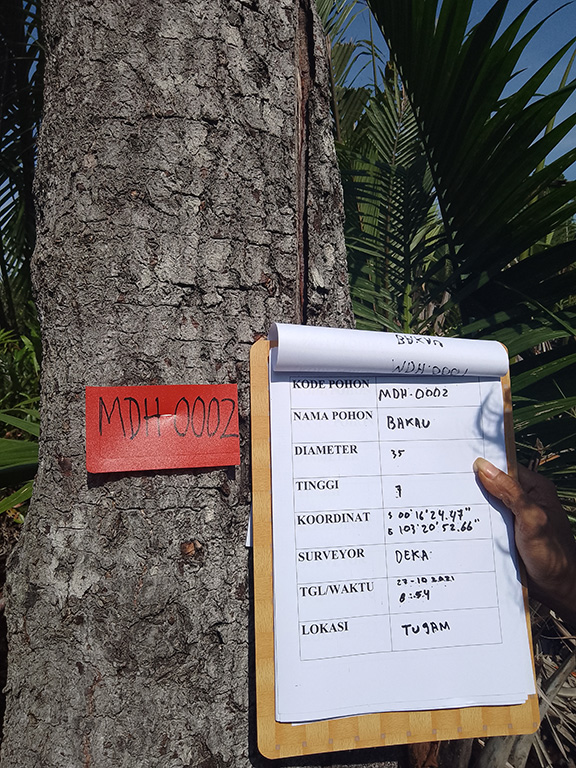 MDH-0002
BAKAU
MDH-0001
KODE POHON MDH-0002
NAMA POHON BAKAU
DIAMETER 35
TINGGI 7
KOORDINAT S 00°16'24.47"
E 103°20'52.66"
SURVEYOR DEKA
TGL/WAKTU 27-10 2021
8:54
LOKASI TUGAM